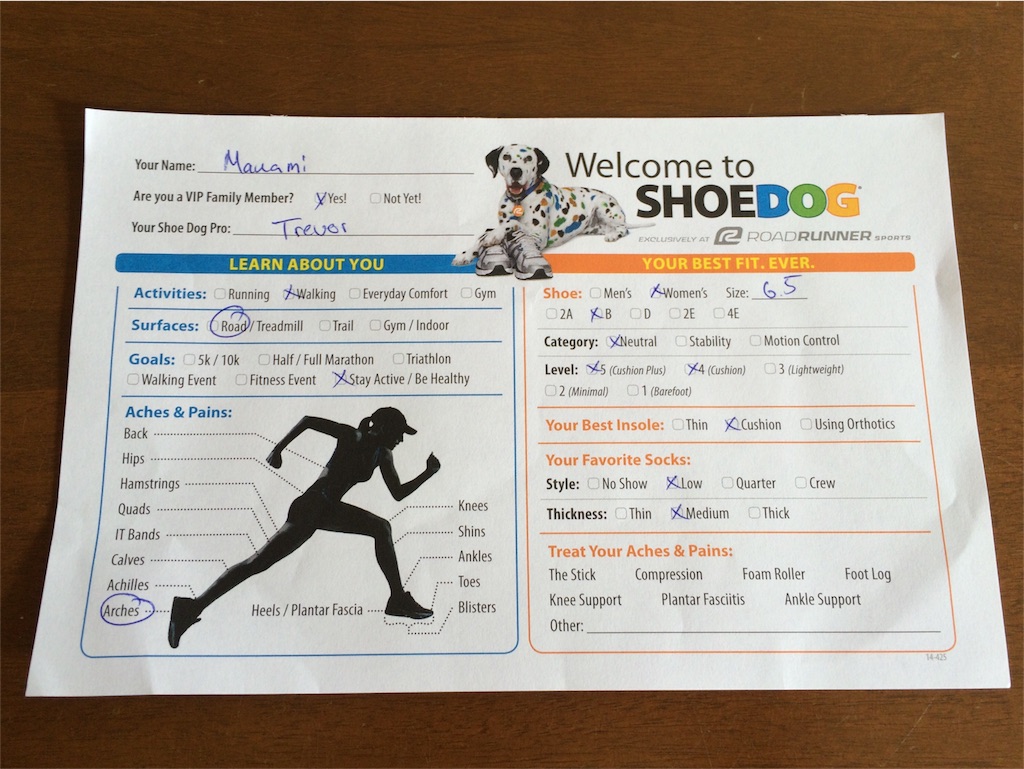 Your Name: Manami
Are you a VIP Family Member? Yes! Not Yet!
Your Shoe Dog Pro: Trevor
Welcome to
SHOEDOG
EXCLUSIVELY AT ROADRUNNER SPORTS
LEARN ABOUT YOU
Activities: Running Walking Everyday Comfort Gym
Surfaces: Road / Treadmill Trail Gym / Indoor
Goals: 5k / 10k Half / Full Marathon Triathlon
Walking Event Fitness Event Stay Active / Be Healthy
Aches & Pains:
Back
Hips
Hamstrings
Quads
IT Bands
Calves
Achilles
Arches
Heels / Plantar Fascia
Knees
Shins
Ankles
Toes
Blisters
YOUR BEST FIT. EVER.
Shoe: Men's Women's Size: 6.5
2A B D 2E 4E
Category: Neutral Stability Motion Control
Level: 5 (Cushion Plus) 4 (Cushion) 3 (Lightweight)
2 (Minimal) 1 (Barefoot)
Your Best Insole: Thin Cushion Using Orthotics
Your Favorite Socks:
Style: No Show Low Quarter Crew
Thickness: Thin Medium Thick
Treat Your Aches & Pains:
The Stick Compression Foam Roller Foot Log
Knee Support Plantar Fasciitis Ankle Support
Other:
14-425